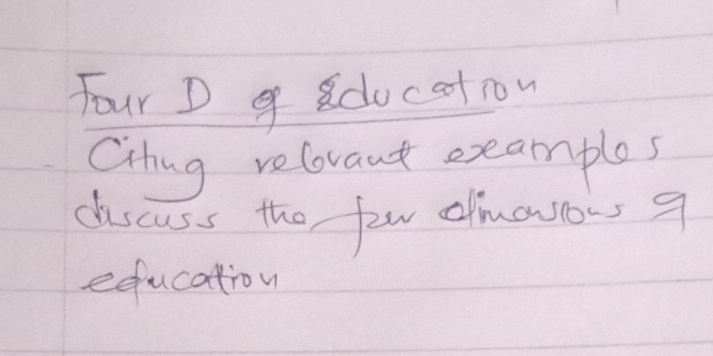 Four D of Education
Citing relevant examples
discuss the four dimensions of
education